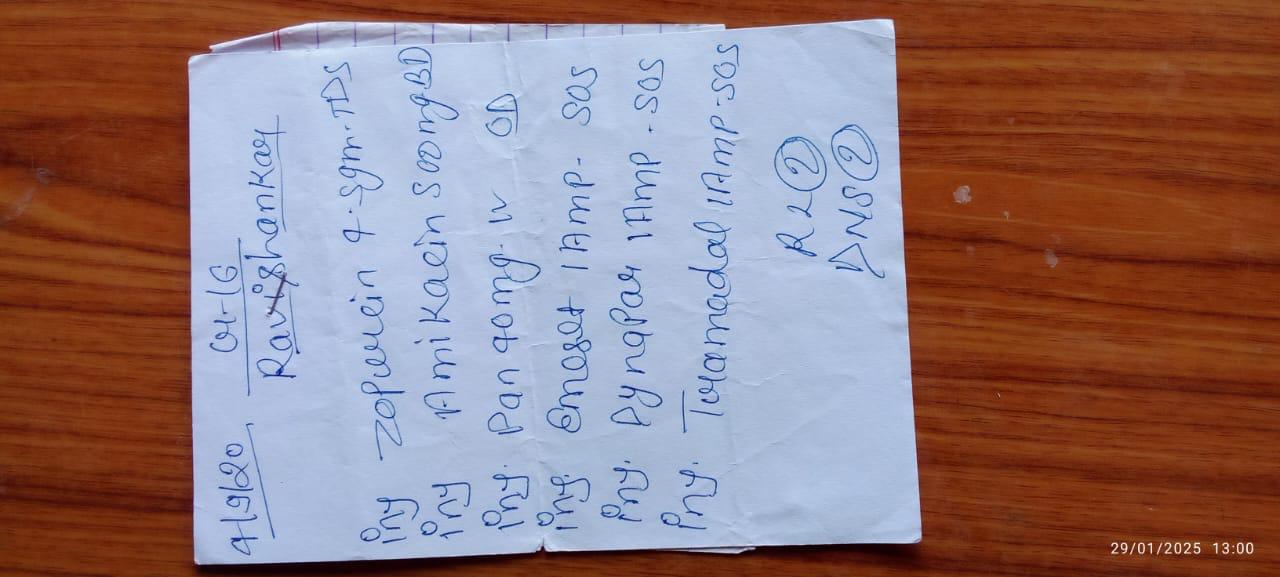 4/9/20
Ravishankar
inj Zopercin 4.5gm.TDS
inj Amikacin 500mg BD
inj. Pan 40mg. IV OD
inj. Emeset 1 Amp. SOS
inj. PynaPar 1Amp. SOS
inj. Toramadal 1Amp. SOS
RL (2)
DNS (2)
29/01/2025 13:00